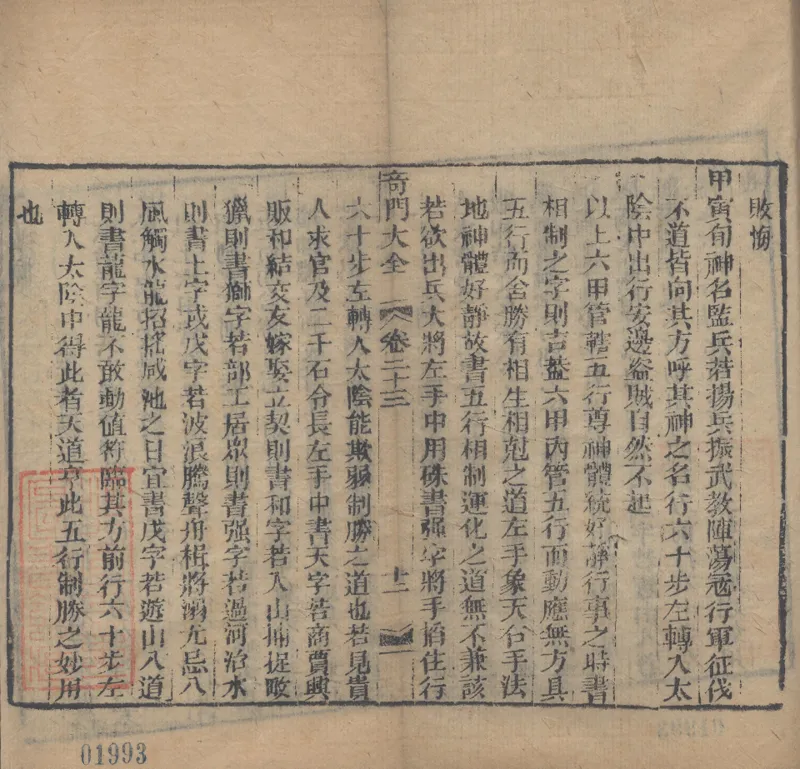 敗悔
甲寅旬神名監兵若揚兵振武教陣蕩冦行軍征伐
不道皆向其方呼其神之名行六十步左轉入太
陰中出行安邊盜賊自然不起
以上六甲管轄五行尊神體統好靜行事之時書
相制之字則吉葢六甲內管五行而動應無方具
五行而舍勝有相生相尅之道左手象天右手法
地神體好靜故書五行相制運化之道無不兼該
若欲出兵大將左手中用硃書强字將手搯住行
奇門大全 卷二十三 十二
六十步左轉入太陰能欺强制勝之道也若見貴
人求官及二千石分長左手中書天字若商賈興
販和結交友嫁娶立契則書和字若入山捕捉畋
獵則書獅字若部工居眾則書强字若過河治水
則書土字或戊字若波浪騰聲舟楫將溺尤忌八
風觸水龍招搖咸池之日宜書戊字若遊山八道
則書龍字龍不敢動值符臨其方前行六十步左
轉入太陰中得此者天道亨此五行制勝之妙用
也
01993